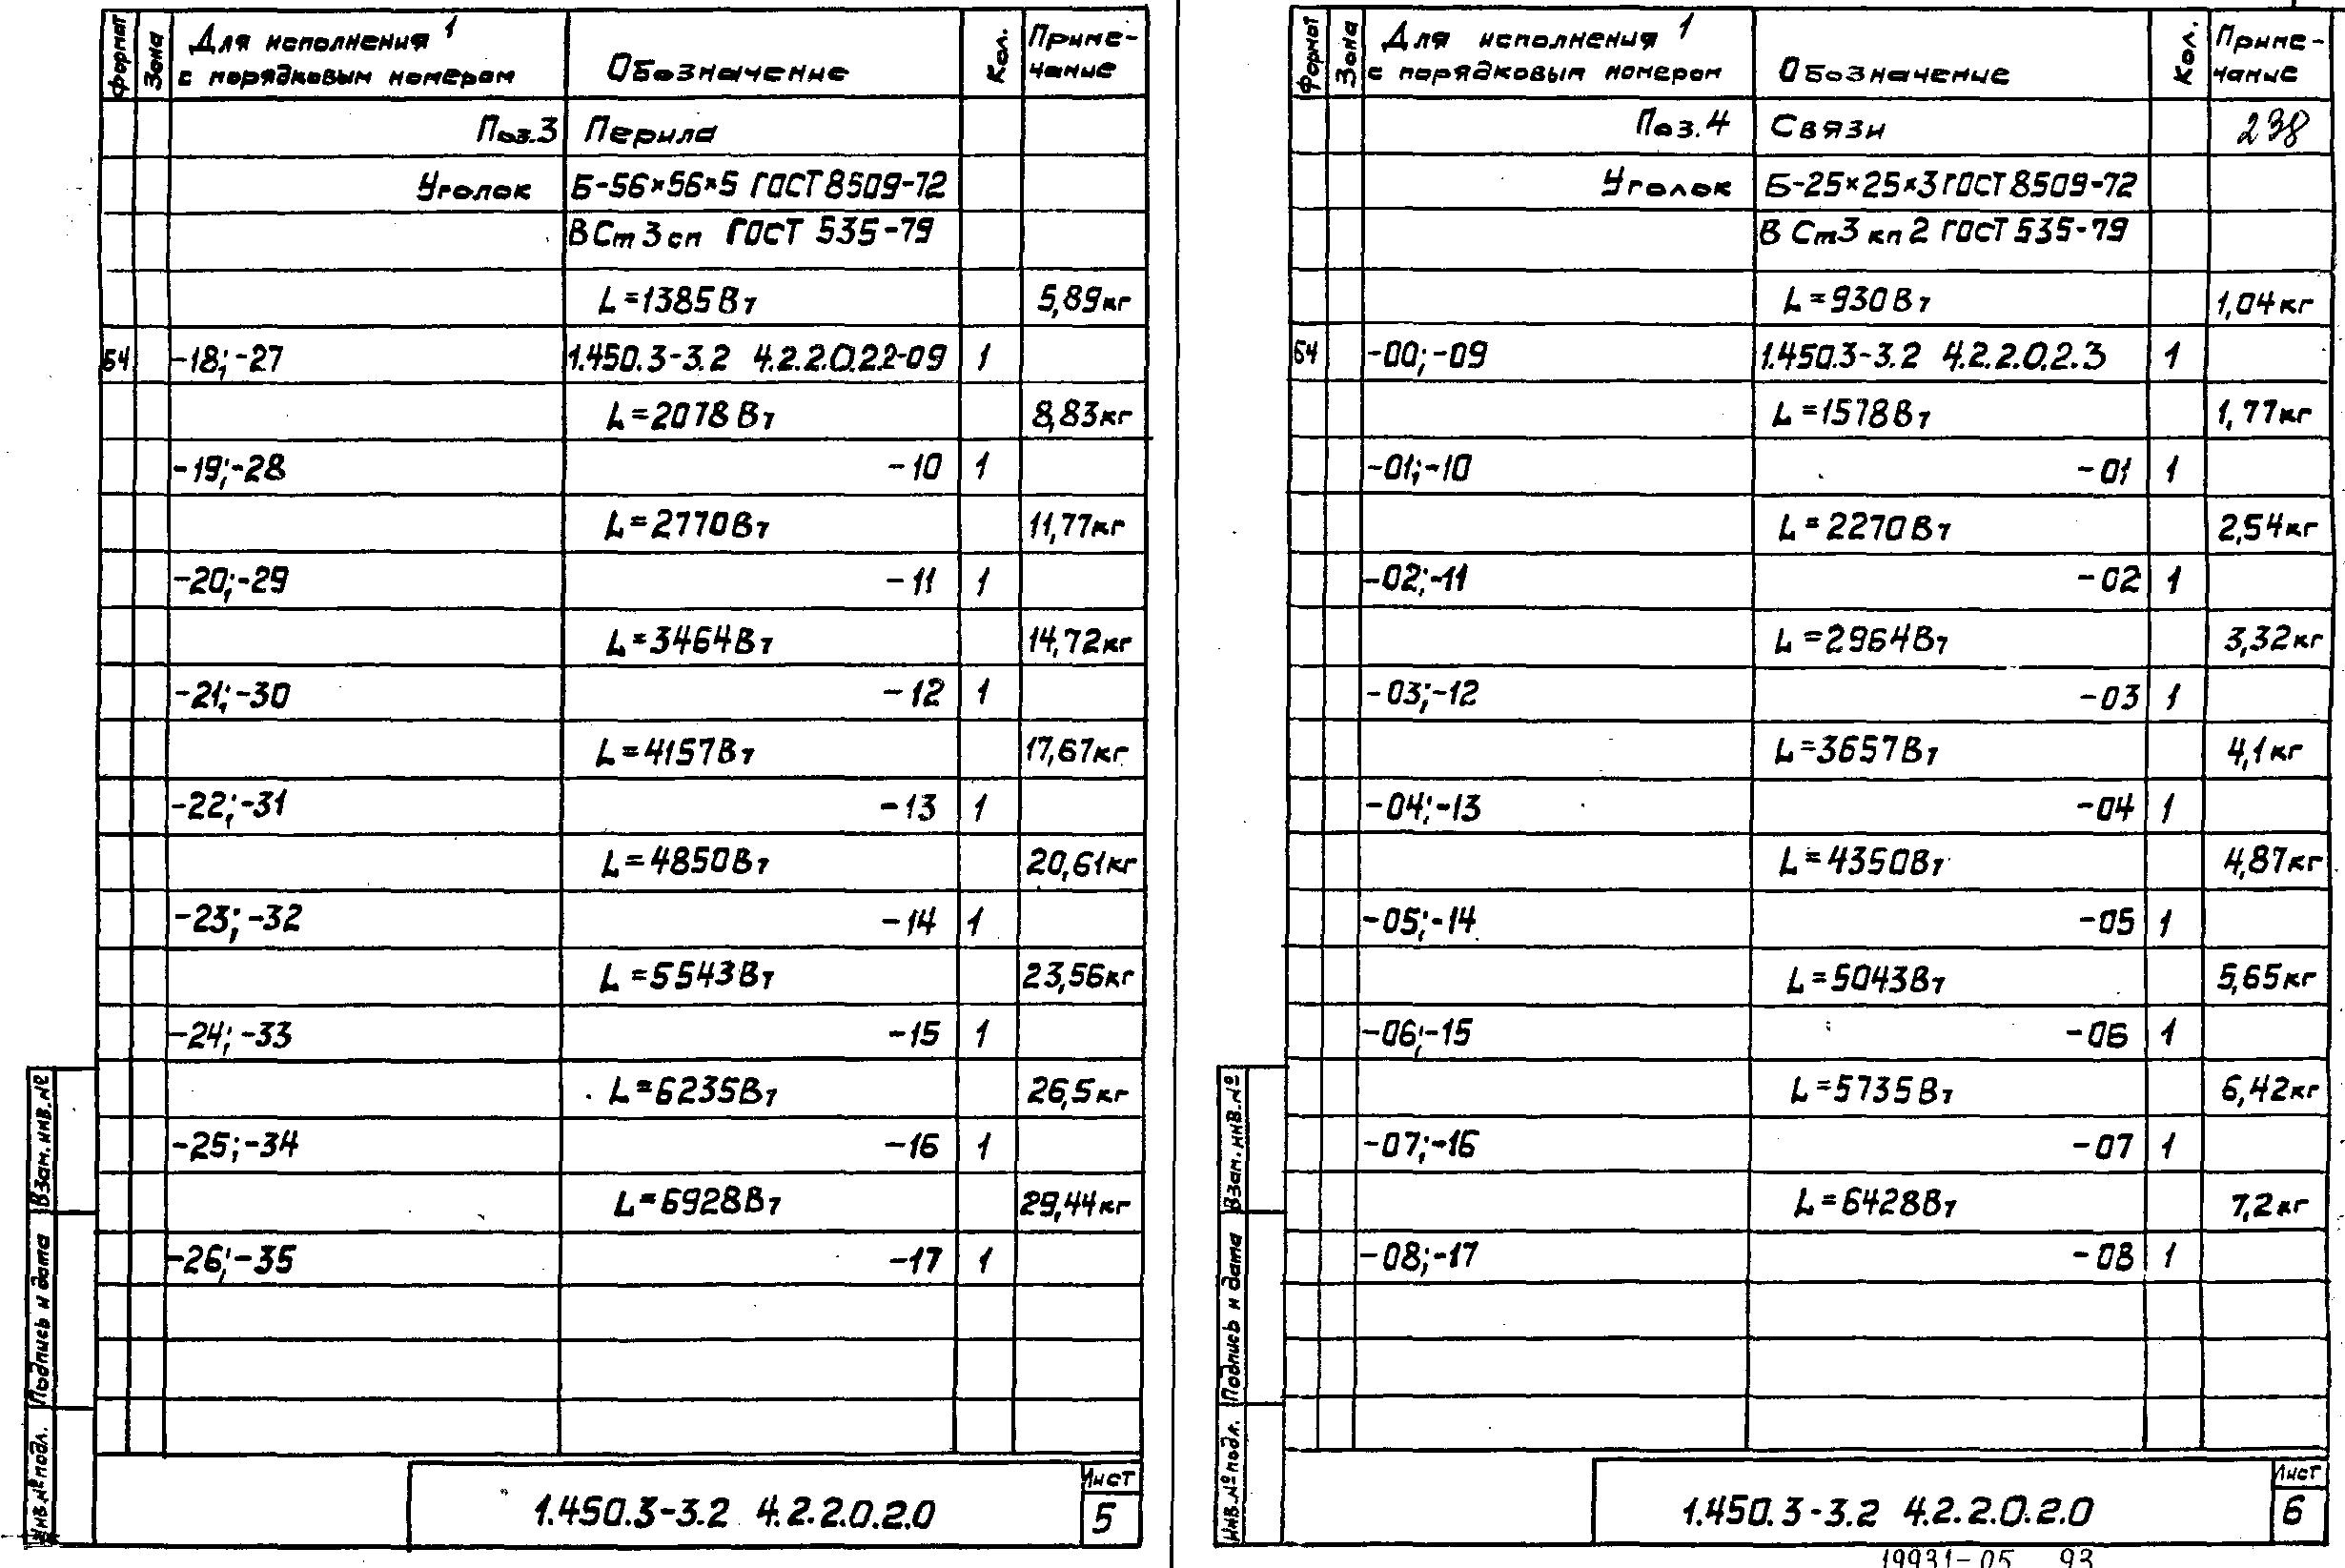 Формат Зона Для исполнения 1 с порядковым номером Обозначение Кол. Приме-чание
Поз.3 Перила
Уголок Б-56×56×5 ГОСТ 8509-72
ВСт3сп ГОСТ 535-79
L=1385Вт 5,89кг
Б4 -18; -27 1.450.3-3.2 4.2.2.0.2.2-09 1
L=2078Вт 8,83кг
-19; -28 -10 1
L=2770Вт 11,77кг
-20; -29 -11 1
L=3464Вт 14,72кг
-21; -30 -12 1
L=4157Вт 17,67кг
-22; -31 -13 1
L=4850Вт 20,61кг
-23; -32 -14 1
L=5543Вт 23,56кг
-24; -33 -15 1
L=6235Вт 26,5кг
-25; -34 -16 1
L=6928Вт 29,44кг
-26; -35 -17 1
Взам. инв. №
Подпись и дата
Инв. № подл.
1.450.3-3.2 4.2.2.0.2.0 Лист 5
Формат Зона Для исполнения 1 с порядковым номером Обозначение Кол. Приме-чание
Поз.4 Связи 238
Уголок Б-25×25×3 ГОСТ 8509-72
ВСт3кп2 ГОСТ 535-79
L=930Вт 1,04кг
Б4 -00; -09 1.450.3-3.2 4.2.2.0.2.3 1
L=1578Вт 1,77кг
-01; -10 -01 1
L=2270Вт 2,54кг
-02; -11 -02 1
L=2964Вт 3,32кг
-03; -12 -03 1
L=3657Вт 4,1кг
-04; -13 -04 1
L=4350Вт 4,87кг
-05; -14 -05 1
L=5043Вт 5,65кг
-06; -15 -06 1
L=5735Вт 6,42кг
-07; -16 -07 1
L=6428Вт 7,2кг
-08; -17 -08 1
Взам. инв. №
Подпись и дата
Инв. № подл.
1.450.3-3.2 4.2.2.0.2.0 Лист 6
19931-05 93